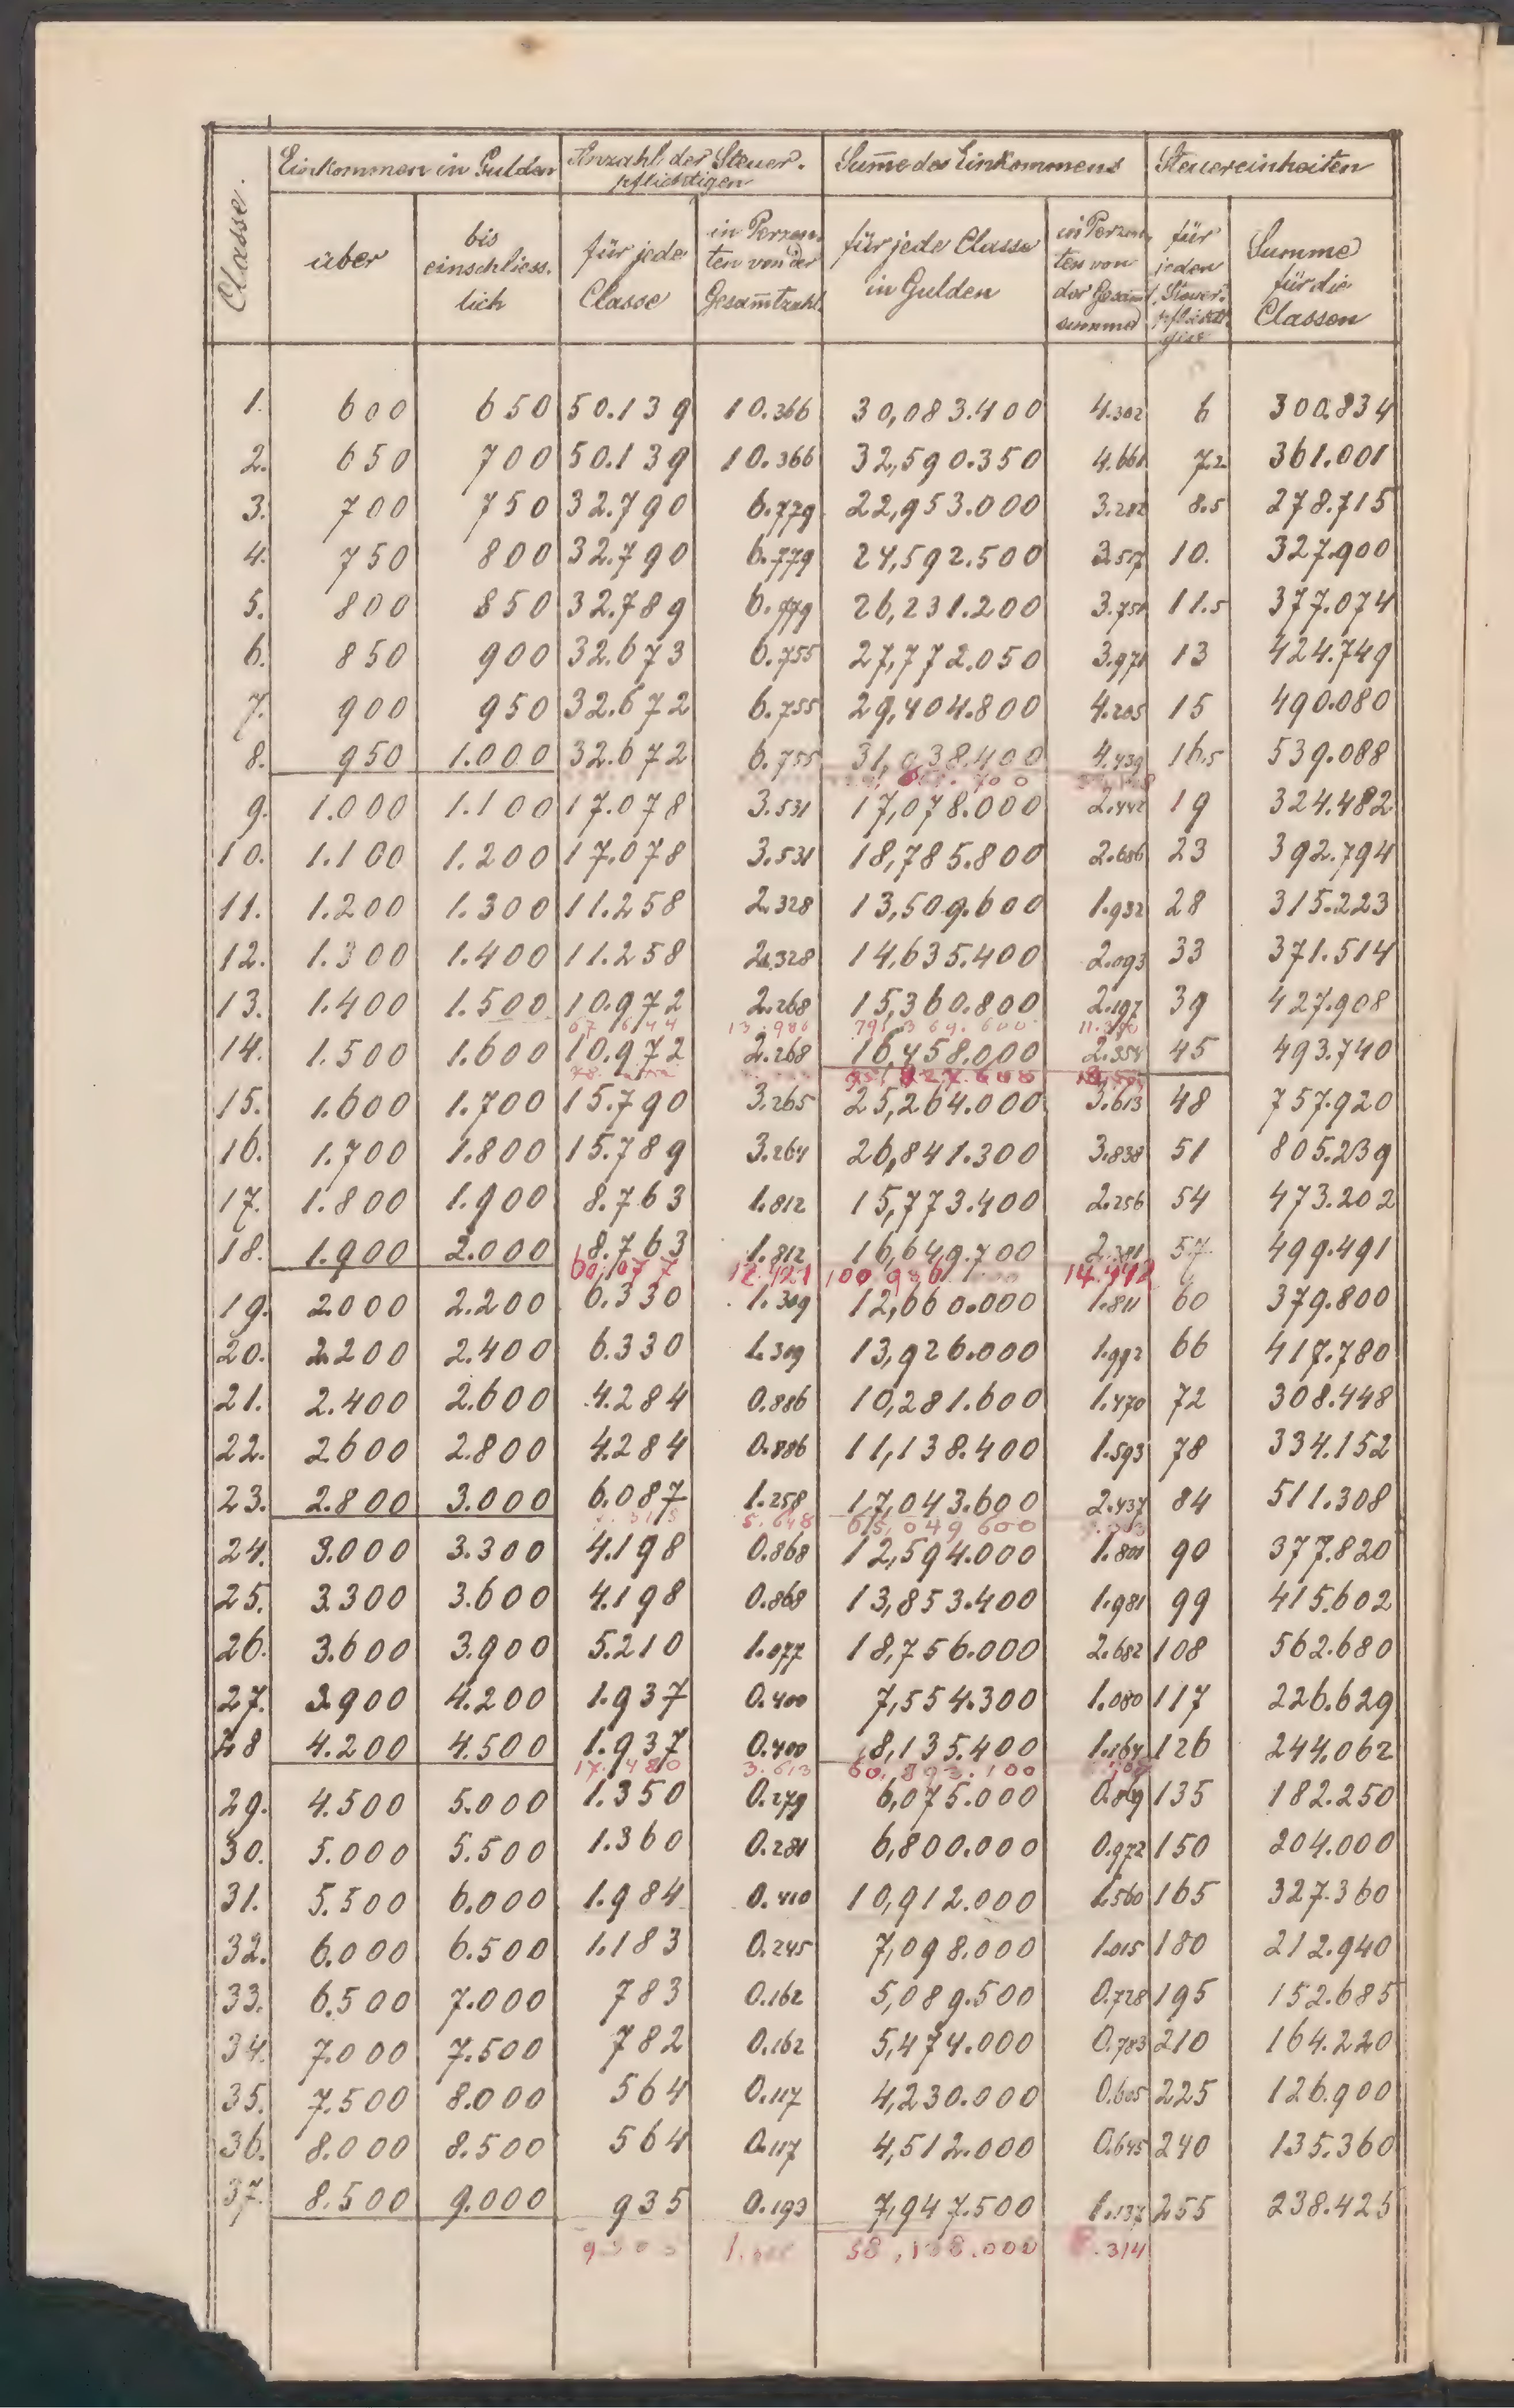 Classe.
Einkommen in Gulden
Anzahl der Steuer-
pflichtigen
Sum̄e des Einkommens
Steuereinheiten
über
bis
einschliess-
lich
für jede
Classe
in Perzen-
ten von der
Gesam̄tzahl
für jede Classe
in Gulden
in Perzen-
ten von
der Gesam̄t
summe
für
jeden
Steuer-
pflichti-
gen
Summe
für die
Classen
1. 600 650 50.139 10.366 30,083.400 4.302 6 300.834
2. 650 700 50.139 10.366 32,590.350 4.661 7.2 361.001
3. 700 750 32.790 6.779 22,953.000 3.282 8.5 278.715
4. 750 800 32.790 6.779 24,592.500 3.517 10. 327.900
5. 800 850 32.789 6.779 26,231.200 3.751 11.5 377.074
6. 850 900 32.673 6.755 27,772.050 3.971 13 424.749
7. 900 950 32.672 6.755 29,404.800 4.205 15 490.080
8. 950 1.000 32.672 6.755 31,038.400 4.439 16.5 539.088
9. 1.000 1.100 17.078 3.531 17,078.000 2.442 19 324.482
10. 1.100 1.200 17.078 3.531 18,785.800 2.686 23 392.794
11. 1.200 1.300 11.258 2.328 13,509.600 1.932 28 315.223
12. 1.300 1.400 11.258 2.328 14,635.400 2.093 33 371.514
13. 1.400 1.500 10.972 2.268 15,360.800 2.197 39 427.908
67.644 13.986 79,369.600
14. 1.500 1.600 10.972 2.268 16,458.000 2.354 45 493.740
15. 1.600 1.700 15.790 3.265 25,264.000 3.613 48 757.920
16. 1.700 1.800 15.789 3.264 26,841.300 3.838 51 805.239
17. 1.800 1.900 8.763 1.812 15,773.400 2.256 54 473.202
18. 1.900 2.000 8.763 1.812 16,649.700 2.381 57 499.491
60.077 12.421
19. 2.000 2.200 6.330 1.309 12,660.000 1.811 60 379.800
20. 2.200 2.400 6.330 1.309 13,926.000 1.992 66 417.780
21. 2.400 2.600 4.284 0.886 10,281.600 1.470 72 308.448
22. 2600 2.800 4.284 0.886 11,138.400 1.593 78 334.152
23. 2.800 3.000 6.087 1.258 17,043.600 2.437 84 511.308
5.648 65,049 600
24. 3.000 3.300 4.198 0.868 12,594.000 1.801 90 377.820
25. 3.300 3.600 4.198 0.868 13,853.400 1.981 99 415.602
26. 3.600 3.900 5.210 1.077 18,756.000 2.682 108 562.680
27. 3.900 4.200 1.937 0.400 7,554.300 1.080 117 226.629
28 4.200 4.500 1.937 0.400 8,135.400 1.164 126 244.062
17.480 3.613 60,893.100
29. 4.500 5.000 1.350 0.279 6,075.000 0.869 135 182.250
30. 5.000 5.500 1.360 0.281 6,800.000 0.972 150 204.000
31. 5.500 6.000 1.984 0.410 10,912.000 1.560 165 327.360
32. 6.000 6.500 1.183 0.245 7,098.000 1.015 180 212.940
33. 6.500 7.000 783 0.162 5,089.500 0.728 195 152.685
34. 7.000 7.500 782 0.162 5,474.000 0.783 210 164.220
35. 7.500 8.000 564 0.117 4,230.000 0.605 225 126.900
36. 8.000 8.500 564 0.117 4,512.000 0.645 240 135.360
37. 8.500 9.000 935 0.193 7,947.500 1.137 255 238.425
58,138.000 8.314